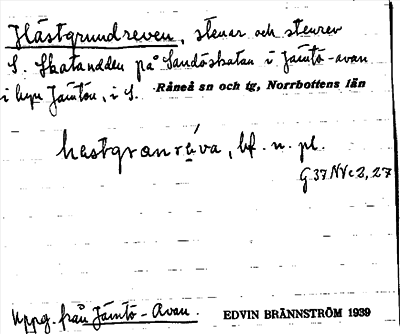 Hästgrundreven, stenar och stenrev
S. Skatudden på Sandöskatan i Jämtö-avan
i byn Jämtön, i S. Råneå sn och tg, Norrbottens län
hastgranrẹ́va, bf. n. pl.
G 37 NV c 2, 27
Uppg. från Jämtö-Avan. EDVIN BRÄNNSTRÖM 1939